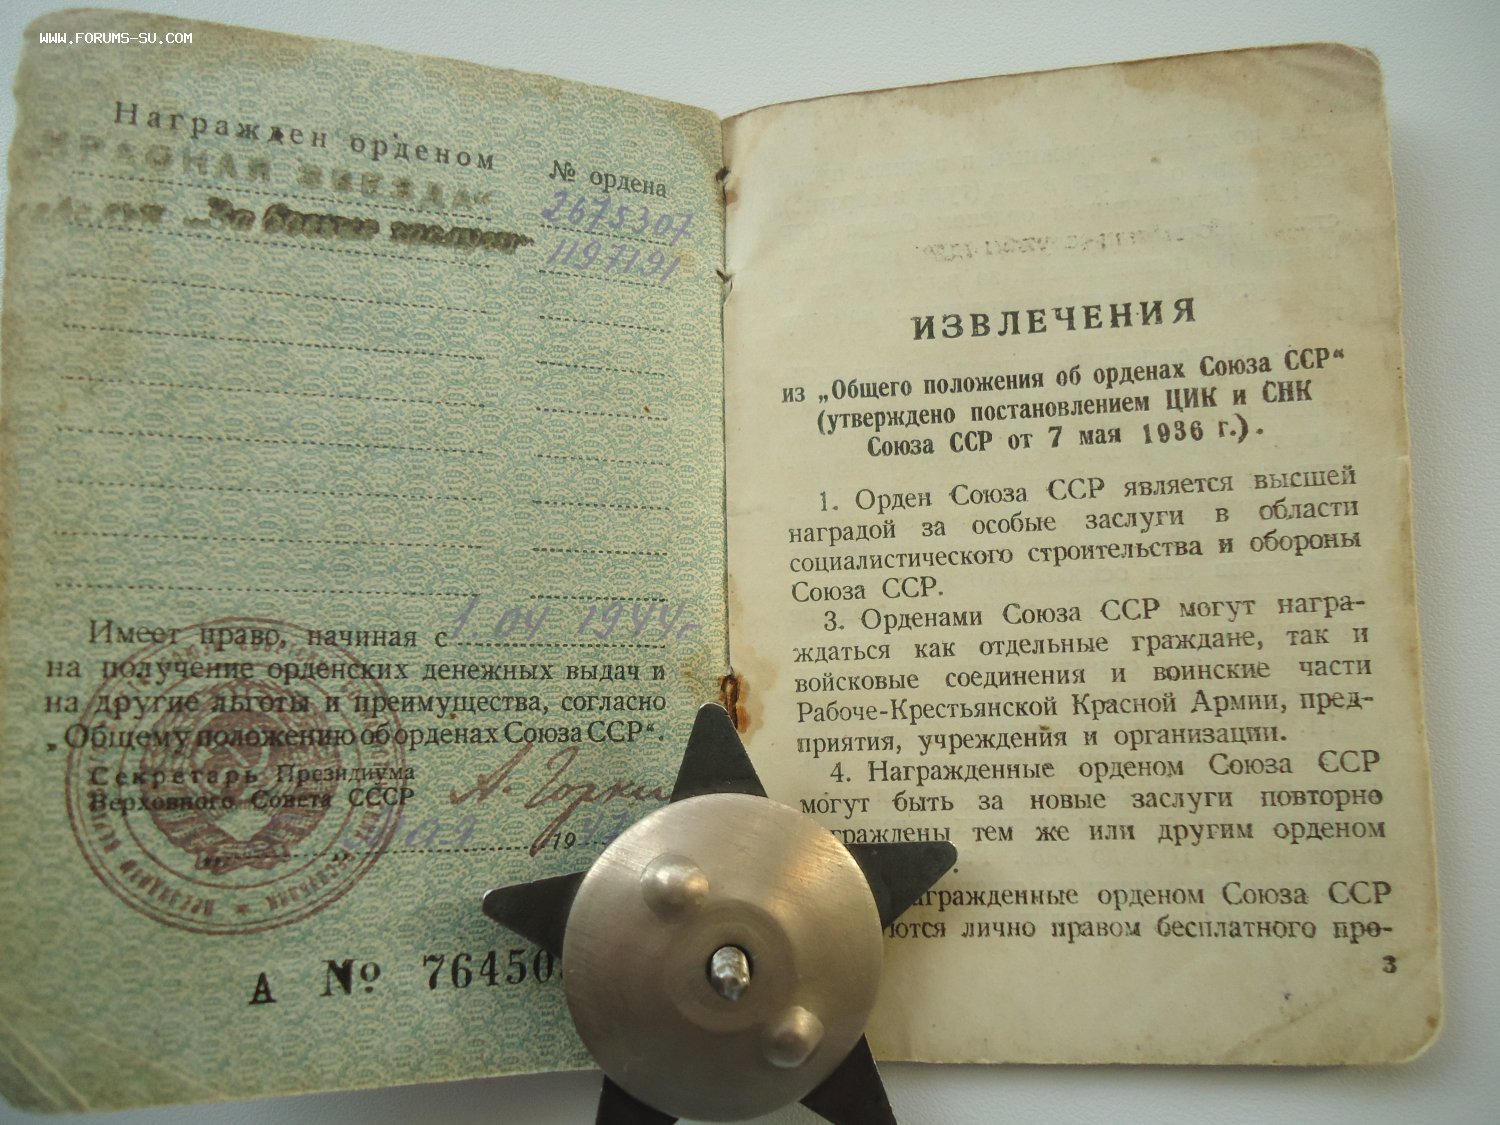 WWW.FORUMS-SU.COM
Награжден орденом
№ ордена
КРАСНАЯ ЗВЕЗДА“
2675307
„За боевые заслуги“
1197191
Имеет право, начиная с 1 04 1944 г
на получение орденских денежных выдач и
на другие льготы и преимущества, согласно
„Общему положению об орденах Союза ССР“.
Секретарь Президиума
Верховного Совета СССР
А. Горкин
мая 19
А № 76450
ИЗВЛЕЧЕНИЯ
из „Общего положения об орденах Союза ССР“
(утверждено постановлением ЦИК и СНК
Союза ССР от 7 мая 1936 г.).
1. Орден Союза ССР является высшей
наградой за особые заслуги в области
социалистического строительства и обороны
Союза ССР.
3. Орденами Союза ССР могут награ-
ждаться как отдельные граждане, так и
войсковые соединения и воинские части
Рабоче-Крестьянской Красной Армии, пред-
приятия, учреждения и организации.
4. Награжденные орденом Союза ССР
могут быть за новые заслуги повторно
граждены тем же или другим орденом
агражденные орденом Союза ССР
ются лично правом бесплатного про-
3